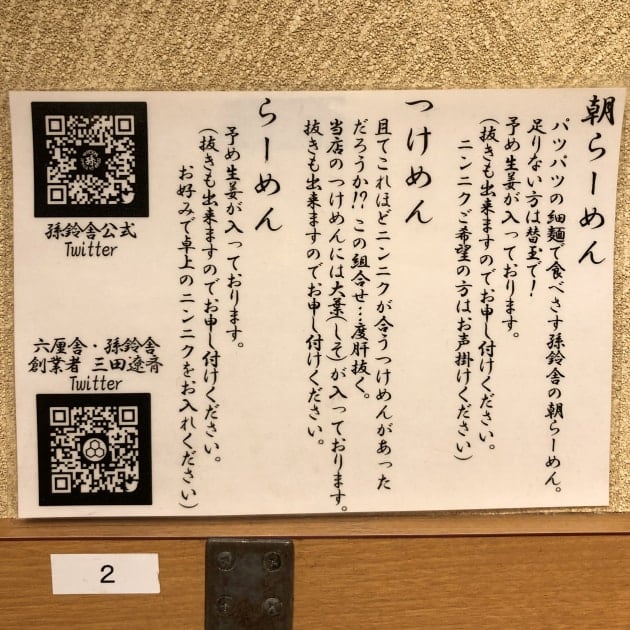 朝らーめん
パツパツの細麺で食べさす孫鈴舎の朝らーめん。
足りない方は替玉で！
予め生姜が入っております。
(抜きも出来ますのでお申し付けください。
ニンニクご希望の方はお声掛けください)
つけめん
且てこれほどニンニクが合うつけめんがあった
だろうか!? この組合せ…度肝抜く。
当店のつけめんには大葉(しそ)が入っております。
抜きも出来ますのでお申し付けください。
らーめん
予め生姜が入っております。
(抜きも出来ますのでお申し付けください。
お好みで卓上のニンニクをお入れください)
孫鈴舎公式
Twitter
六厘舎・孫鈴舎
創業者 三田遼斉
Twitter
2